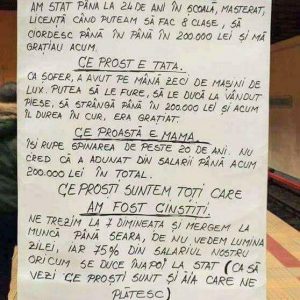 AM STAT PÂNA LA 24 DE ANI ÎN ȘCOALĂ, MASTERAT,
LICENȚĂ CÂND PUTEAM SĂ FAC 8 CLASE, SĂ
CIORDESC PÂNĂ ÎN PÂNĂ ÎN 200.000 LEI ȘI MĂ
GRAȚIAU ACUM.
CE PROST E TATA.
CA ȘOFER, A AVUT PE MÂNĂ ZECI DE MAȘINI DE
LUX. PUTEA SĂ LE FURE, SĂ LE DUCĂ LA VÂNDUT
PIESE, SĂ STRÂNGĂ PÂNĂ ÎN 200.000 LEI ȘI ACUM
ÎL DUREA ÎN CUR, ERA GRAȚIAT.
CE PROASTĂ E MAMA.
ÎȘI RUPE SPINAREA DE PESTE 20 DE ANI. NU
CRED CĂ A ADUNAT DIN SALARII PÂNĂ ACUM
200.000 LEI ÎN TOTAL.
CE PROȘTI SUNTEM TOȚI CARE
AM FOST CINSTIȚI.
NE TREZIM LA 7 DIMINEAȚA ȘI MERGEM LA
MUNCĂ PÂNĂ SEARA, DE NU VEDEM LUMINA
ZILEI, IAR 75% DIN SALARIUL NOSTRU
ORICUM SE DUCE ÎNAPOI LA STAT (CA SĂ
VEZI CE PROȘTI SUNT ȘI ĂIA CARE NE
PLĂTESC)